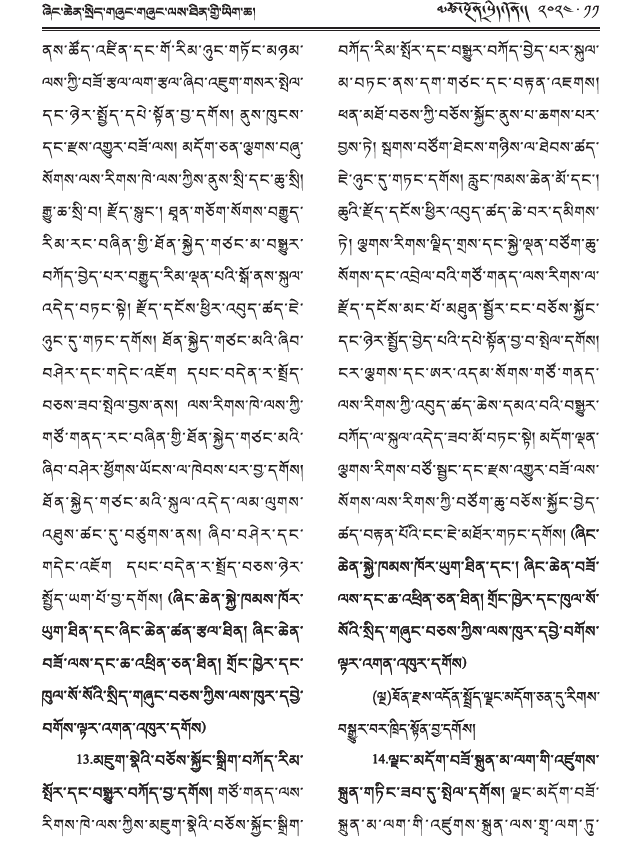 ཞིང་ཆེན་སྲིད་གཞུང་གཞུང་ལས་ཐིན་གྱི་ཡིག་ཆ།
༢༠༢༤ · ༡༡
ནས་ཚོད་འཛིན་དང་གོ་རིམ་ཉུང་གཏོང་མཉམ་
ལས་ཀྱི་བཟོ་རྩལ་ལག་རྩལ་ཞིབ་འཇུག་གསར་སྤེལ་
དང་ཉེར་སྤྱོད་དཔེ་སྟོན་བྱ་དགོས། ནུས་ཁུངས་
དང་རྫས་འགྱུར་བཟོ་ལས། མདོག་ཅན་ལྕགས་བཞུ་
སོགས་ལས་རིགས་ཁེ་ལས་ཀྱིས་ནུས་སྲི་དང་ཆུ་སྲི།
རྒྱུ་ཆ་སྲི་བ། རྫོད་སྲུང་། ཐུན་གཅོག་སོགས་བརྒྱུད་
རིམ་རང་བཞིན་གྱི་ཐོན་སྐྱེད་གཙང་མ་བསྒྱུར་
བཀོད་བྱེད་པར་བརྒྱུད་རིམ་ལྡན་པའི་སྒོ་ནས་སྐུལ་
འདེད་བཏང་སྟེ། རྫོད་དངོས་ཕྱིར་འབུད་ཚད་ཇེ་
ཉུང་དུ་གཏང་དགོས། ཐོན་སྐྱེད་གཙང་མའི་ཞིབ་
བཤེར་དང་གདེང་འཇོག དཔང་བདེན་ར་སྤྲོད་
བཅས་ཟབ་སྤེལ་བྱས་ནས། ལས་རིགས་ཁེ་ལས་ཀྱི་
གཙོ་གནད་རང་བཞིན་གྱི་ཐོན་སྐྱེད་གཙང་མའི་
ཞིབ་བཤེར་ཕྱོགས་ཡོངས་ལ་ཁེབས་པར་བྱ་དགོས།
ཐོན་སྐྱེད་གཙང་མའི་སྐུལ་འདེད་ལམ་ལུགས་
འཐུས་ཚང་དུ་བཙུགས་ནས། ཞིབ་བཤེར་དང་
གདེང་འཇོག དཔང་བདེན་ར་སྤྲོད་བཅས་ཉེར་
སྤྱོད་ཡག་པོ་བྱ་དགོས། (ཞིང་ཆེན་སྐྱེ་ཁམས་ཁོར་
ཡུག་ཐིན་དང་ཞིང་ཆེན་ཚན་རྩལ་ཐིན། ཞིང་ཆེན་
བཟོ་ལས་དང་ཆ་འཕྲིན་ཅན་ཐིན། གྲོང་ཁྱེར་དང་
ཁུལ་སོ་སོའི་སྲིད་གཞུང་བཅས་ཀྱིས་ལས་ཁུར་དབྱེ་
བགོས་ལྟར་འགན་འཁུར་དགོས)
13.མཇུག་སྣེའི་བཅོས་སྐྱོང་སྒྲིག་བཀོད་རིམ་
སྤོར་དང་བསྒྱུར་བཀོད་བྱ་དགོས། གཙོ་གནད་ལས་
རིགས་ཁེ་ལས་ཀྱིས་མཇུག་སྣེའི་བཅོས་སྐྱོང་སྒྲིག་
བཀོད་རིམ་སྤོར་དང་བསྒྱུར་བཀོད་བྱེད་པར་སྐུལ་
མ་བཏང་ནས་དག་གཙང་དང་བརྟན་འཇགས།
ཕན་མཐོ་བཅས་ཀྱི་བཅོས་སྐྱོང་ནུས་པ་ཆགས་པར་
བྱས་ཏེ། སྦགས་བཙོག་ཐེངས་གཉིས་ལ་ཐེབས་ཚད་
ཇེ་ཉུང་དུ་གཏང་དགོས། རླུང་ཁམས་ཆེན་མོ་དང་།
ཆུའི་རྫོད་དངོས་ཕྱིར་འབུད་ཚད་ཆེ་བར་དམིགས་
ཏེ། ལྕགས་རིགས་ལྗིད་གྲས་དང་སྐྱེ་ལྡན་བཙོག་ཆུ་
སོགས་དང་འབྲེལ་བའི་གཙོ་གནད་ལས་རིགས་ལ་
རྫོད་དངོས་མང་པོ་མཐུན་སྦྱོར་ངང་བཅོས་སྐྱོང་
དང་ཉེར་སྤྱོད་བྱེད་པའི་དཔེ་སྟོན་བྱ་བ་སྤེལ་དགོས།
ངར་ལྕགས་དང་ཨར་འདམ་སོགས་གཙོ་གནད་
ལས་རིགས་ཀྱི་འབུད་ཚད་ཆེས་དམའ་བའི་བསྒྱུར་
བཀོད་ལ་སྐུལ་འདེད་ཟབ་མོ་བཏང་སྟེ། མདོག་ལྡན་
ལྕགས་རིགས་བཙོ་སྦྱང་དང་རྫས་འགྱུར་བཟོ་ལས་
སོགས་ལས་རིགས་ཀྱི་བཙོག་ཆུ་བཅོས་སྐྱོང་བྱེད་
ཚད་བརྟན་པོའི་ངང་ཇེ་མཐོར་གཏང་དགོས། (ཞིང་
ཆེན་སྐྱེ་ཁམས་ཁོར་ཡུག་ཐིན་དང་། ཞིང་ཆེན་བཟོ་
ལས་དང་ཆ་འཕྲིན་ཅན་ཐིན། གྲོང་ཁྱེར་དང་ཁུལ་སོ་
སོའི་སྲིད་གཞུང་བཅས་ཀྱིས་ལས་ཁུར་དབྱེ་བགོས་
ལྟར་འགན་འཁུར་དགོས)
(ལྔ)ཐོན་རྫས་འདོན་སྤྲོད་ལྗང་མདོག་ཅན་དུ་རིགས་
བསྒྱུར་བར་ཁྲིད་སྟོན་བྱ་དགོས།
14.ལྗང་མདོག་བཟོ་སྐྲུན་མ་ལག་གི་འཛུགས་
སྐྲུན་གཏིང་ཟབ་ཏུ་སྤེལ་དགོས། ལྗང་མདོག་བཟོ་
སྐྲུན་མ་ལག་གི་འཛུགས་སྐྲུན་ལས་གྲྭ་ལག་ཏུ་